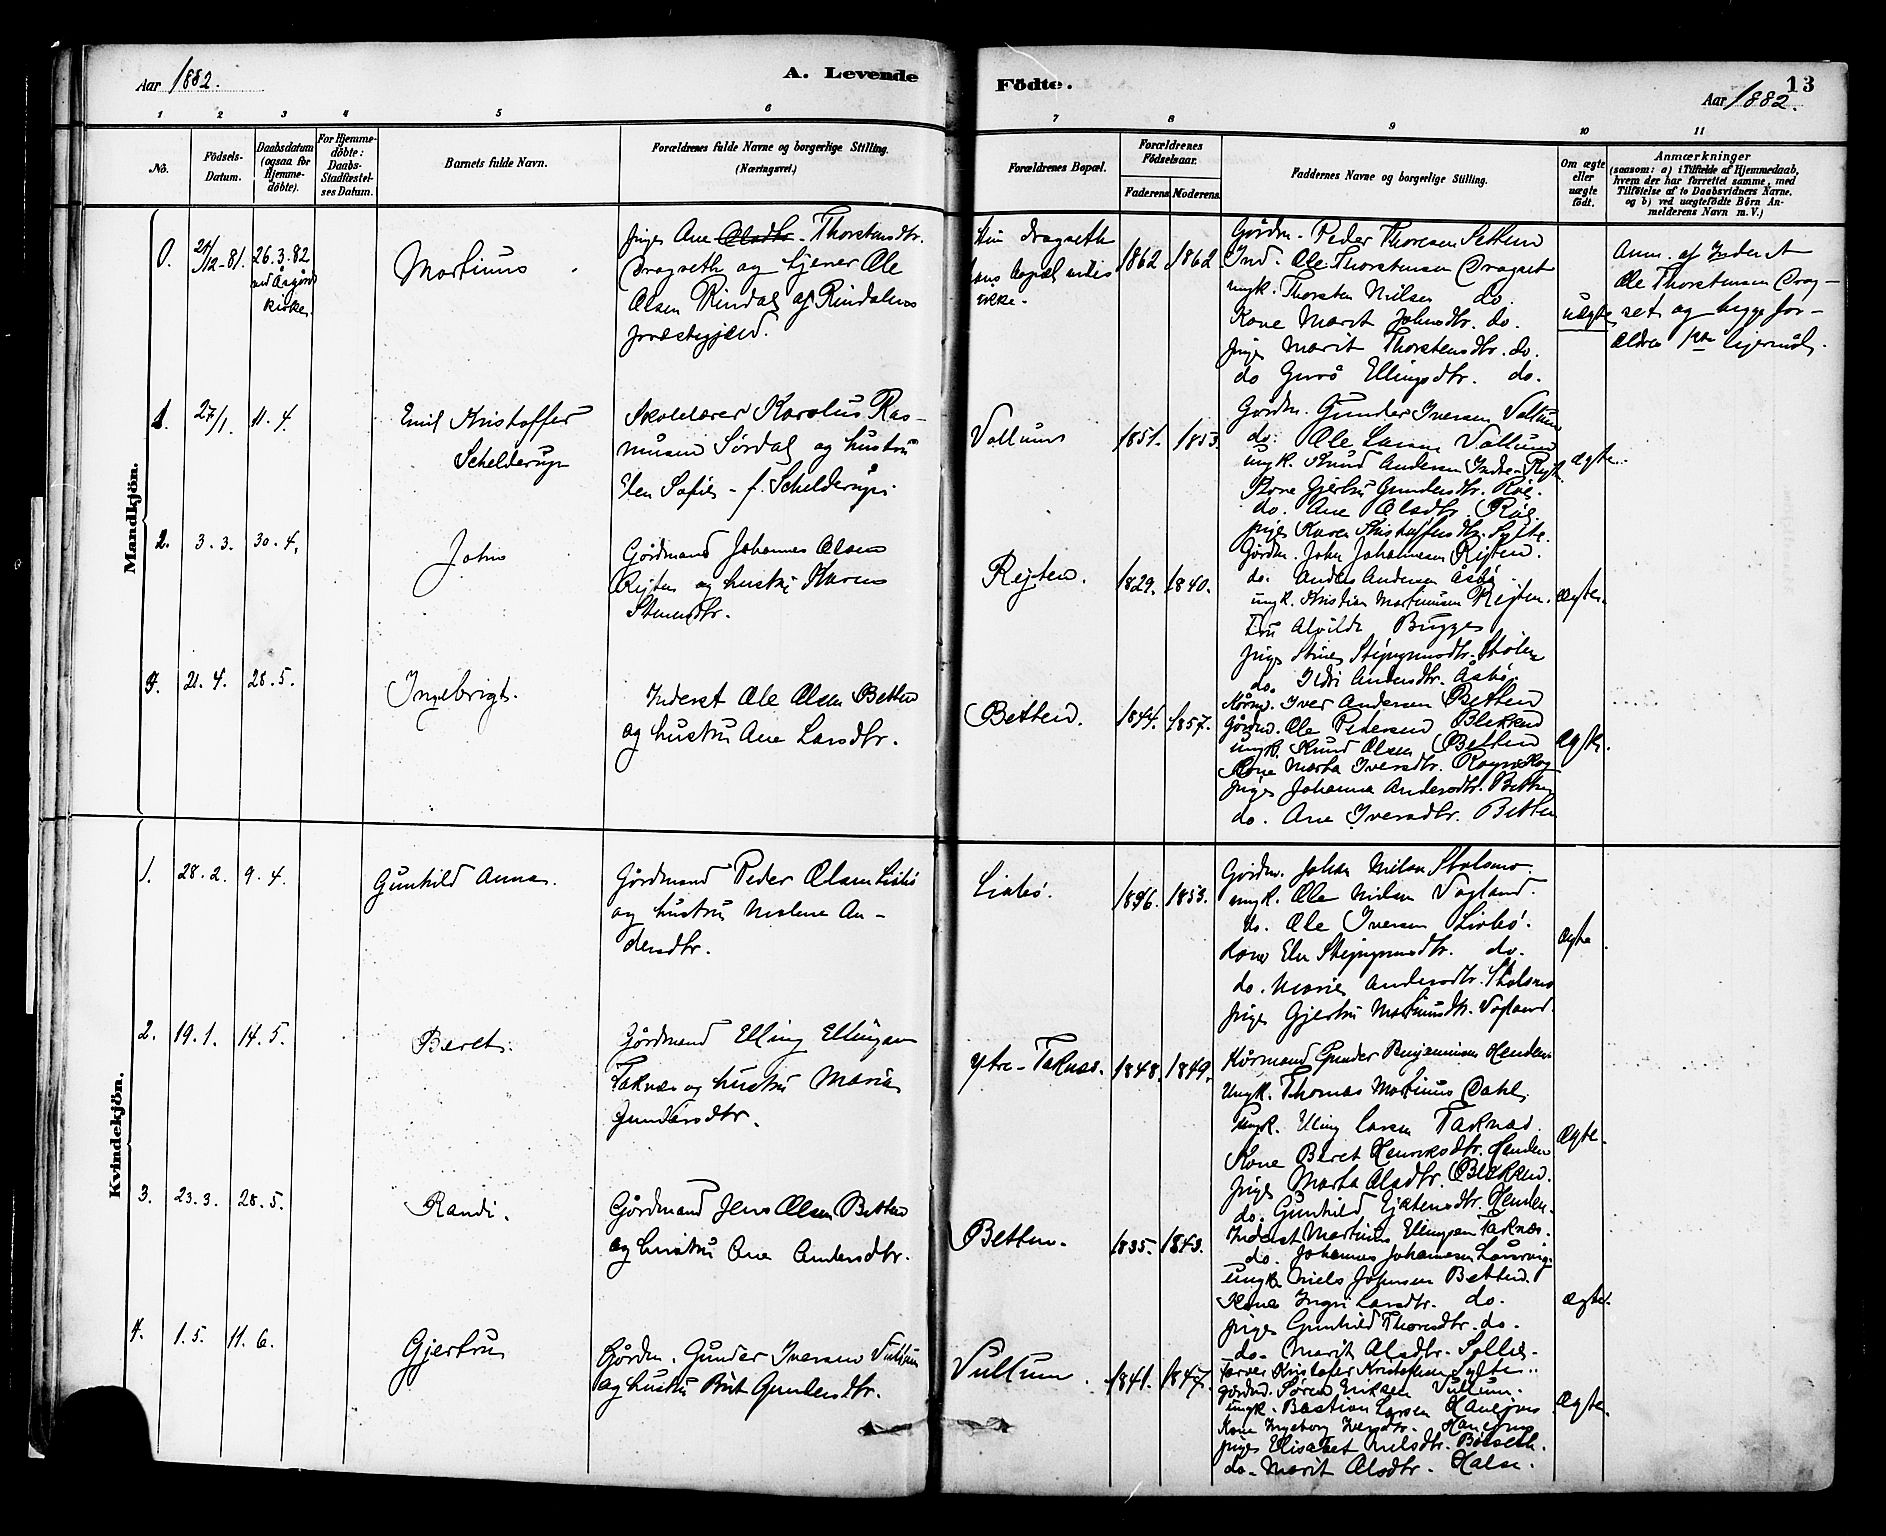 Aar 1882.
A. Levende
Födte.
13
Aar 1882.
1 2 3 4 5 6 7 8 9 10 11
No.
Födsels-Datum.
Daabsdatum (ogsaa for Hjemmedöbte).
For Hjemmedöbte: Daabs-Stadfæstelses Datum.
Barnets fulde Navn.
Forældrenes fulde Navne og borgerlige Stilling.
(Næringsvei.)
Forældrenes Bopæl.
Forældrenes Födselsaar.
Faderens
Moderens.
Faddernes Navne og borgerlige Stilling.
Om ægte eller uægte födt.
Anmærkninger
(saasom: a) i Tilfælde af Hjemmedaab,
hvem der har forrettet samme, med
Tilföielse af to Daabsvidners Navne.
og b) ved uægtefödte Börn Anmelderens Navn m. V.)
Mandkjön.
0.
26.3.82
kirke.
Martinus
Pige Ane Olsdtr. Thorstensdtr.
Dragseth og tjener Ole
Olsen Rindal af Rindalens
præstegjæld.
Dragseth
hans bopæl vides
ikke.
1862
1862
Gårdm. Peder Thoresen Settem
Ind. Ole Thorstensen Dragset
ungk. Thorsten Nielsen do.
Kone Marit Johnsdtr. do.
pige Marit Thorstensdtr. do.
do Guro Ellingsdtr. do.
uægte
Anm. af Inderst
Ole Thorstensen Drag-
set og begge for-
ældre 1ste lejermål.
1.
27/1.
11.4.
Emil Kristoffer
Schelderup
Skolelærer Karolus Ras-
musen Sørdal og hustru
Elen Sofie f. Schelderup.
Vullum
1851.
1853.
Gårdm. Gunder Iversen Vullum
do. Ole Larsen Vullum
ungk. Knud Andersen Indre-
Kone Gjertru Gundersdtr. Røe.
do. Ane Olsdtr. Røe
pige Karen Kristoffersdtr. Sylte.
ægte.
2.
3.3.
30.4.
John
Gårdmand Johannes Olsen
Rejten og hustru Karen
Rejten.
1829.
1840.
Gårdm. John Johannesen Rejten.
do. Anders Andersen Åsbø
ungk. Kristian Martinusen Rejten.
Fru Alvilde Bugge
do. Ildri Andersdtr. Åsbø.
ægte.
4.
21.4.
28.5.
Ingebrigt.
Inderst Ole Olsen Betten
og hustru Ane Larsdtr.
Betten.
1844.
1857.
Iver Andersen Betten
Gårdm. Ole Pedersen Blekken
ungk. Knud Olsen Betten
Kone Marta Iversdtr.
pige Johanna Andersdtr. Betten
do. Ane Iversdtr. Betten
ægte.
Kvindekjön.
1.
28.2.
9.4.
Gunhild Anna.
Gårdmand Peder Olsen Liabø
og hustru Malene An-
dersdtr.
Liabø.
1853.
Gårdm. Johan Nilsen Stolsmo.
ungk. Ole Nielsen Vagland.
do. Ole Iversen Liabø.
do.
do. Marie Andersdtr. Stolsmo
pige Gjertru Martinusdtr. Vagland.
ægte
2.
19.1.
14.5.
Beret.
Gårdmand Elling Ellingsen
Taknæs og hustru Maria
Gundersdtr.
Ytre-Taknæs.
1848.
1849.
Kårmand Gunder Benjaminsen Henden
Ungk. Thomas Martinus Dahl
ungk. Elling Larsen Taknæs.
Kone Beret Henriksdtr. Henden
pige Marta Olsdtr. Blekken.
do. Gunhild Henden.
ægte.
3.
23.3.
28.5.
Randi.
Gårdmand Jens Olsen Betten
og hustru Ane Andersdtr.
Betten.
1835.
1843.
Inderst Martinus Ellingsen Taknæs.
do. Johannes Johannesen
ungk. Niels Johnsen Betten.
Kone Ingri Larsdtr. do.
pige Gunhild Thoresdtr. do.
do. Marit Olsdtr.
ægte.
4.
1.5.
11.6.
Gjertru
Gårdm. Gunder Iversen Vullum
og hustru Brit Gundersdtr.
Vullum.
1841.
1847.
Farver Kristofer Kristofersen Sylte
gårdmd. Søren Eriksen Vullum.
ungk. Bastian Larsen
Kone Ingeborg Iversdtr.
pige Elisabet Nielsdtr. Bøseth.
do. Marit Olsdtr. Halse.
ægte.